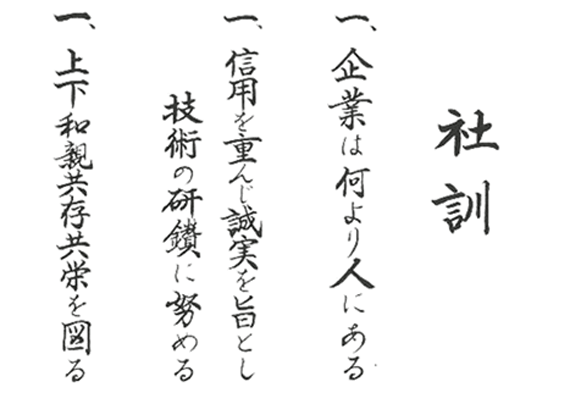 社訓
一、企業は何より人にある
一、信用を重んじ誠実を旨とし
技術の研鑚に努める
一、上下和親共存共栄を図る